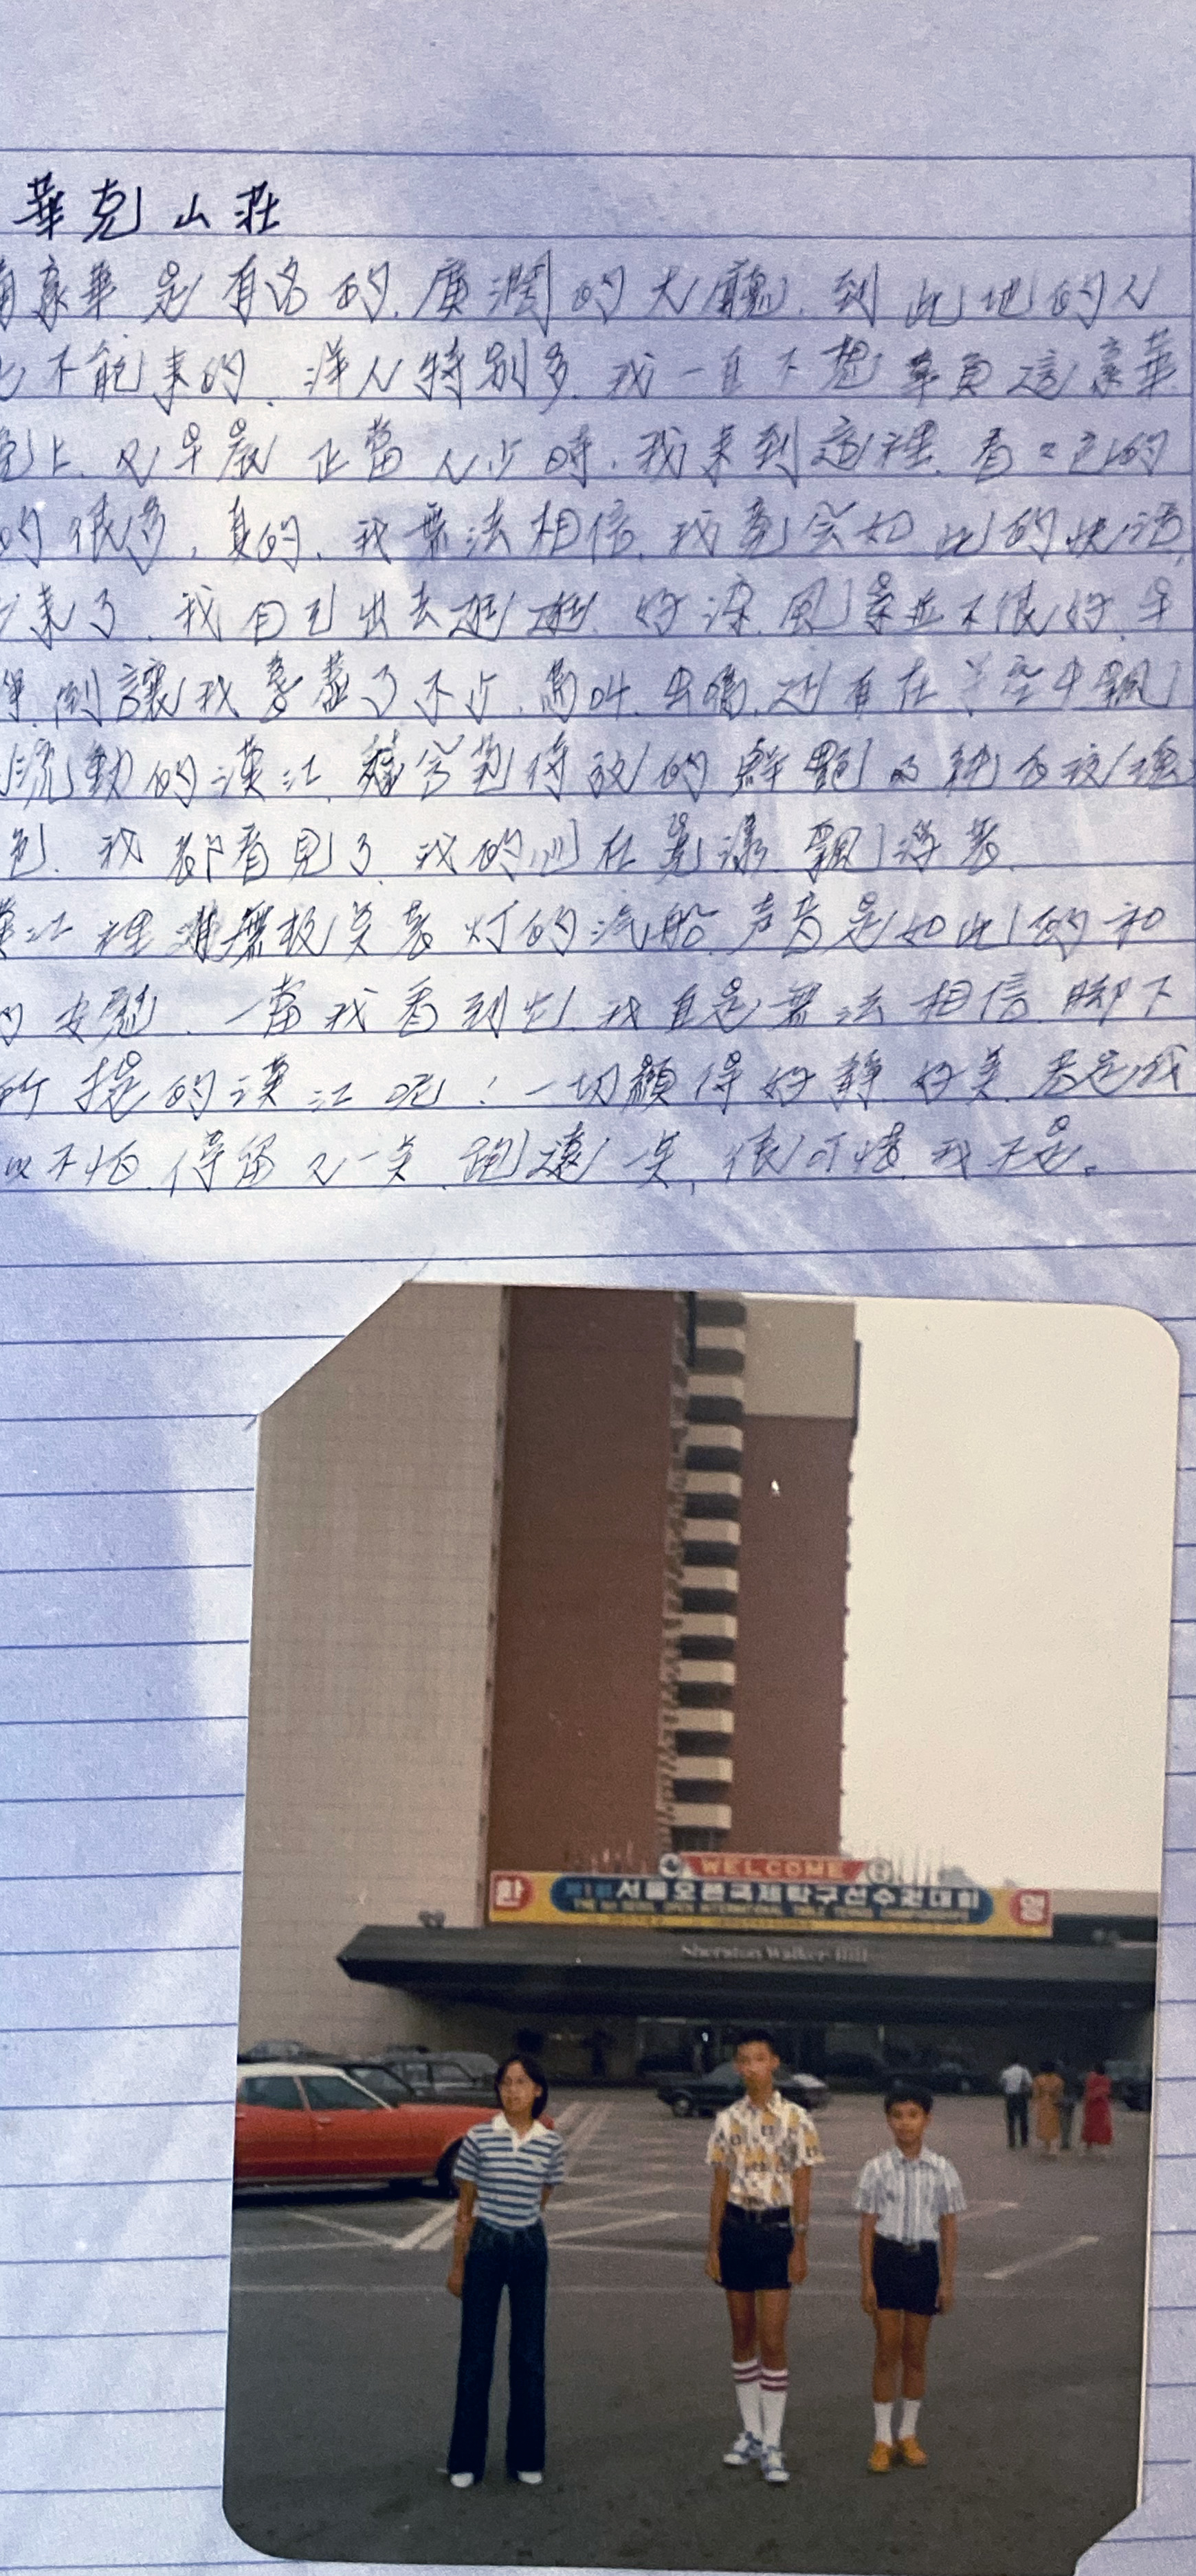 華克山莊
豪華是有名的.廣濶的大廳.到此地的人
不能來的.洋人特別多.我一直不想辜負這豪華
晚上.又早晨正當人少時.我來到這裡.看
的很多,真的.我無法相信.我竟会如此的快活.
來了.我自己出去逛逛.好涼.風景並不很好.早
倒讓我享盡了不少.鳥叫.虫鳴.还有在半空中飄
流動的漢江.含苞待放的鮮艷的純白玫瑰
色.我都看見了.我的心在晃漾.飄浮着.
江裡無极美着灯的汽船.声音是如此的和
安慰.一當我看到它.我真是無法相信.脚下
所提的漢江呢!一切顯得好靜.好美.若是我
以不怕.停留久一点.跑遠一点,很可惜.我不是。
WELCOME
환 제1회 서울오픈국제탁구선수권대회 영
THE 1st SEOUL OPEN INTERNATIONAL TABLE TENNIS CHAMPIONSHIPS
Sheraton Walker Hill